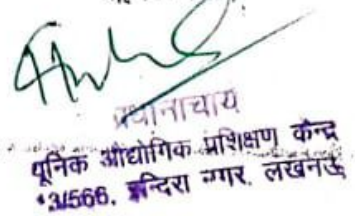 प्रधानाचार्य
यूनिक औद्योगिक प्रशिक्षण केन्द्र
3/566, इन्दिरा नगर, लखनऊ